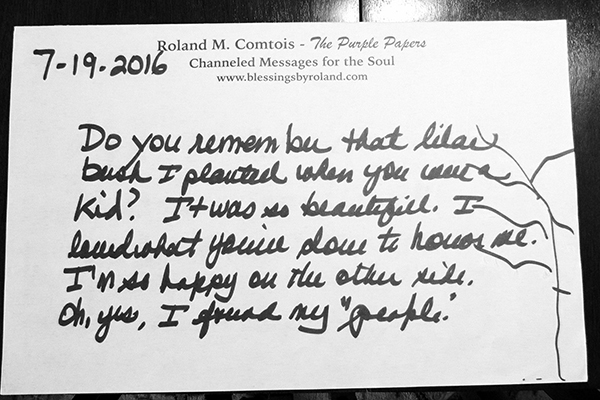 Roland M. Comtois - The Purple Papers
7-19-2016
Channeled Messages for the Soul
www.blessingsbyroland.com
Do you remember that lilac
bush I planted when you were a
kid? It was so beautiful. I
loved what you've done to honor me.
I'm so happy on the other side.
Oh, yes, I found my "people."